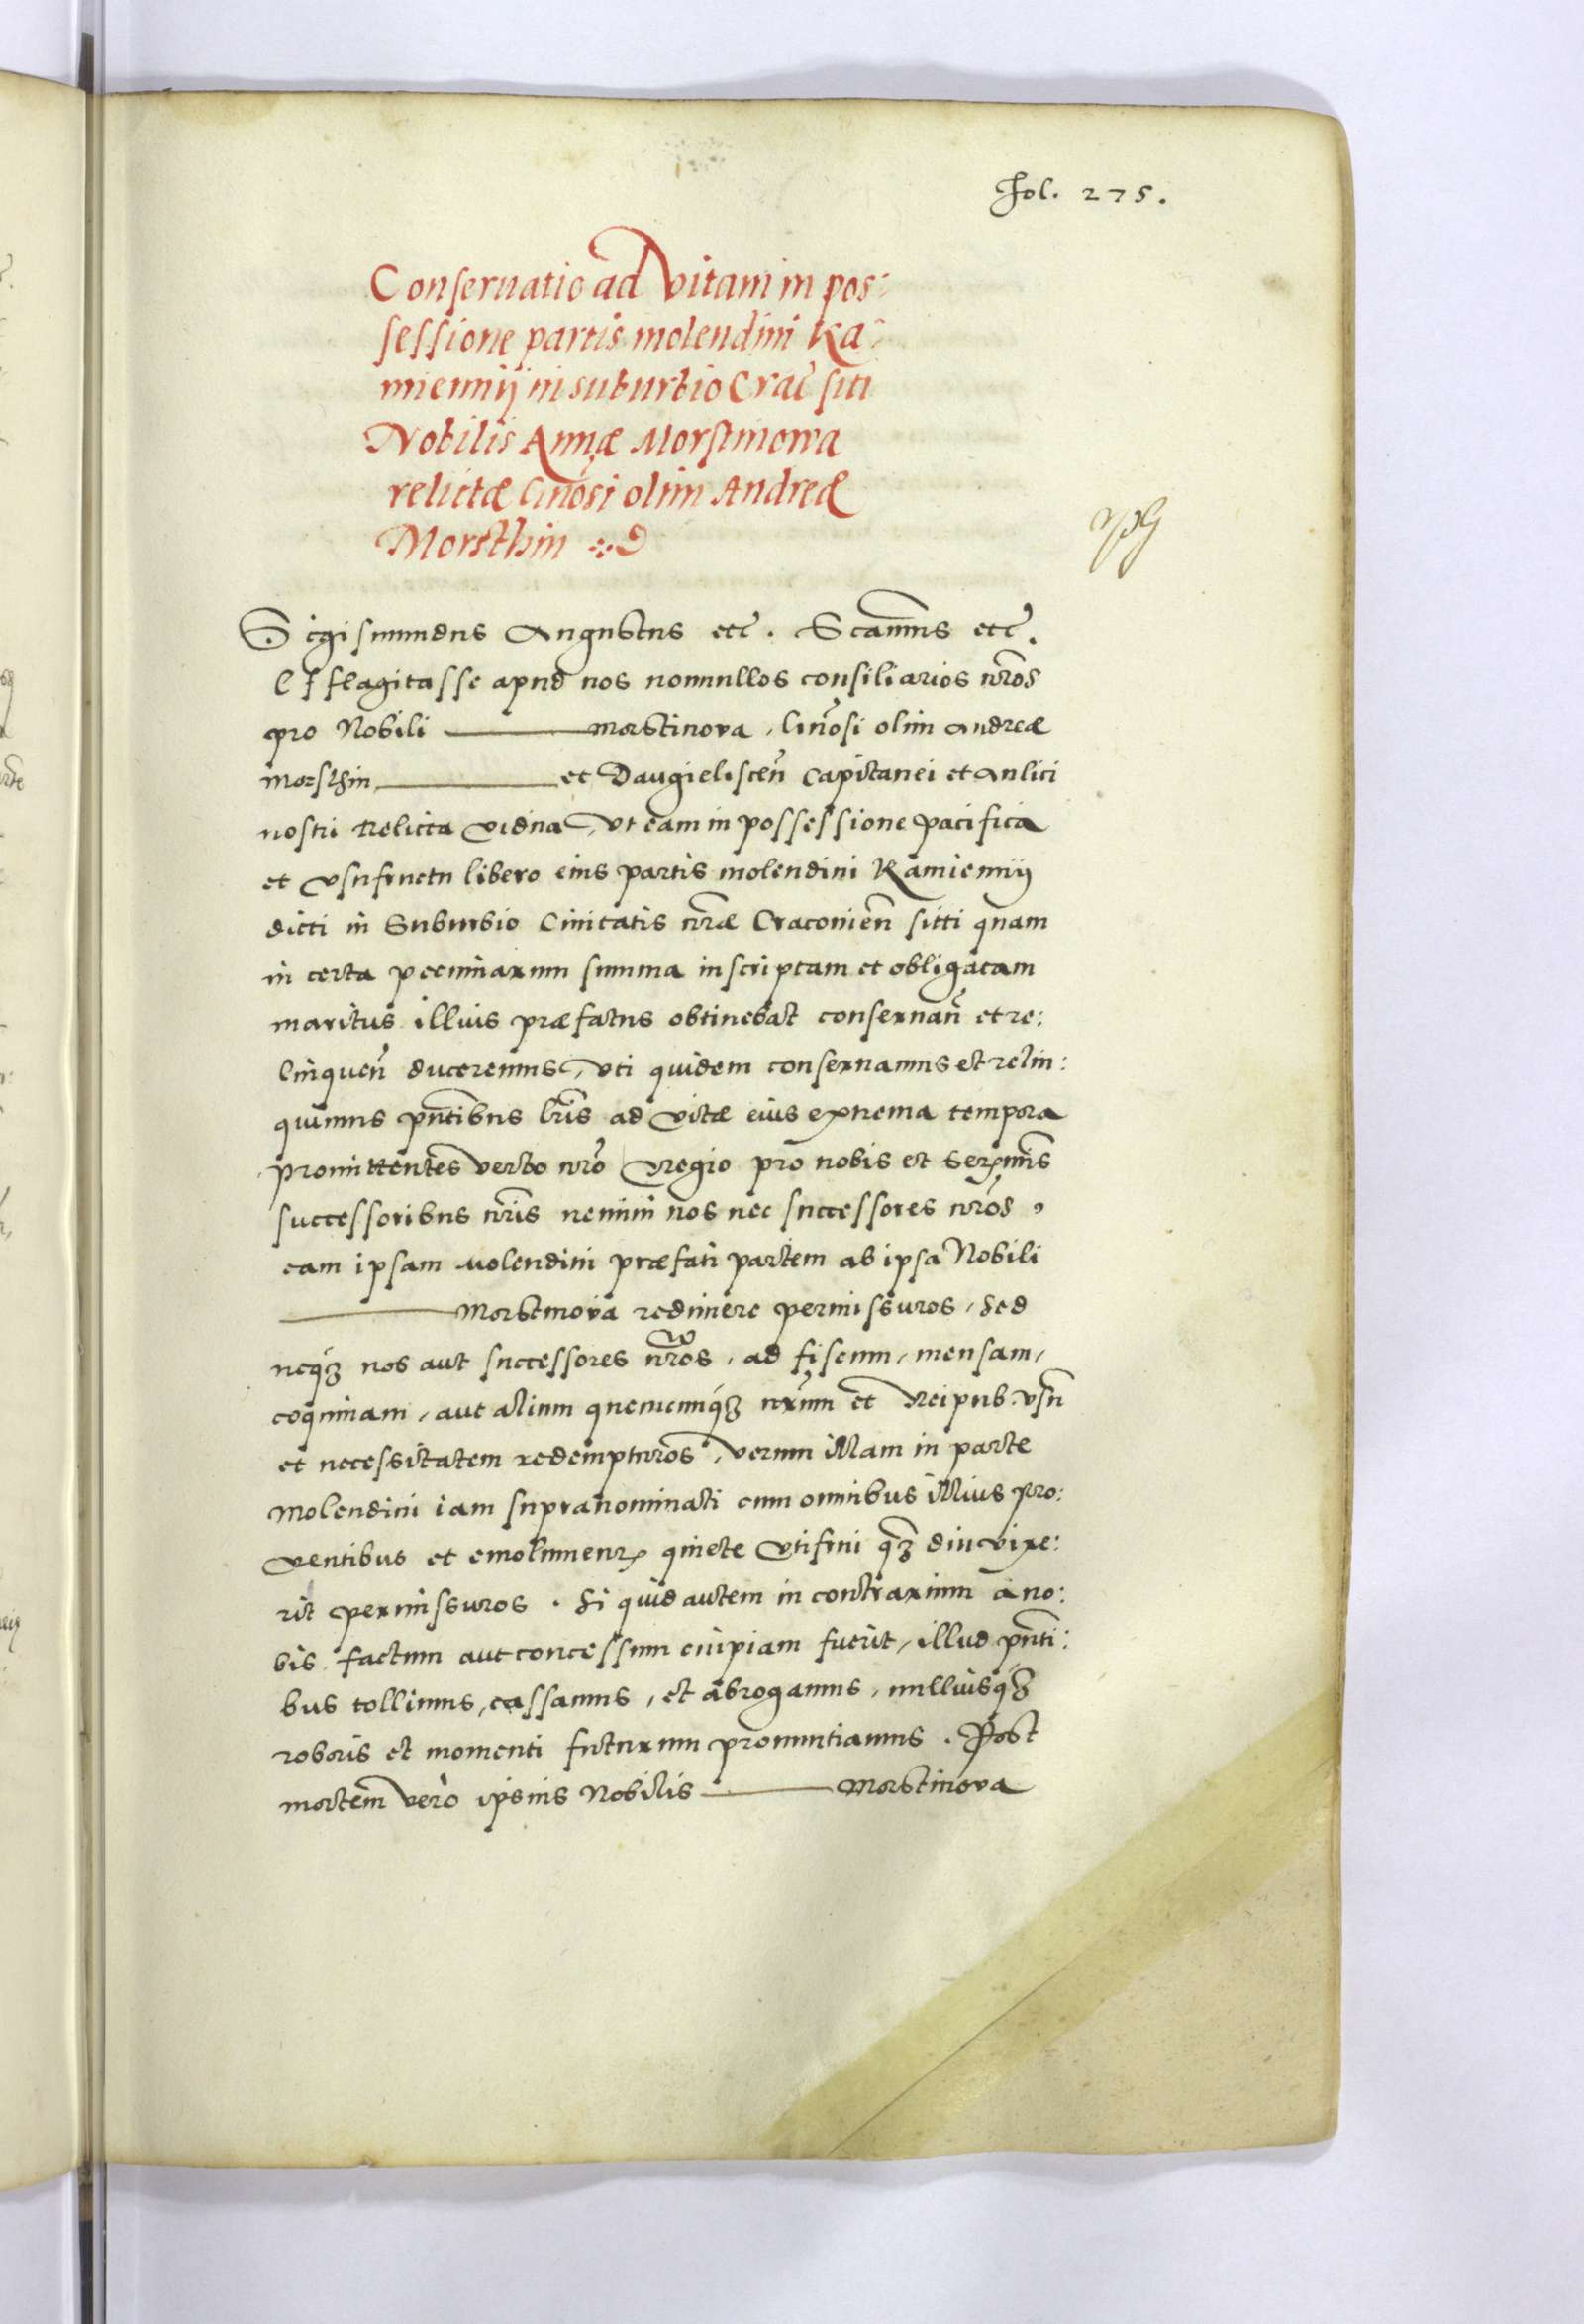 Fol. 275.
Conseruatio ad Vitam in pos:
sessione partis molendini Ka:
miennij in suburbio Crac̃ siti
Nobilis Annæ Morstinowa
relictæ Gñosi olim Andreæ
Morsthin
Sigismundus Augustus etc̃. Significamus etc̃.
Efflagitasse apud nos nonnullos consiliarios nr̃os
pro Nobili ——— Morstinova, Gñosi olim Andreæ
Morsthin ——— et Daugieliscen̄ Capitanei et Aulici
nostri Relicta Vidua, Vt eam in possessione pacifica
et Vsufructu libero eius partis molendini Kamiennij
dicti in Suburbio Ciuitatis nr̃æ Cracouien̄ sitti quam
in certa pecuniarum summa inscriptam et obligatam
maritus illius præfatus obtinebat conseruan̄ et re:
linquen̄ duceremus, vti quidem conseruamus et relin:
quimus pñtibus lr̃is ad Vitæ eius extrema tempora
Promittentes verbo nr̃o Regio pro nobis et Serenmis
successoribus nr̃is nemini nos nec successores nr̃os,
eam ipsam molendini præfati partem ab ipsa Nobili
——— Morstinova redimere permissuros, sed
neq́ꝫ nos aut successores nr̃os, ad fiscum, mensam,
coquinam, aut alium quemcunq́ꝫ nr̃um et Reipub. vsũ
et necessitatem redempturos, verum illam in parte
Molendini iam supranominati cum omnibus illius pro:
ventibus et emolumentꝭ quiete Vti frui qꝫ diu vixe:
rit permissuros. Si quid autem in contrarium à no:
bis factum aut concessum cuipiam fuerit, illud pñti:
bus tollimus, cassamus, et abrogamus, nulliusq́ꝫ
roboris et momenti futurum pronuntiamus. Post
mortem vero ipsius Nobilis ——— Morstinova